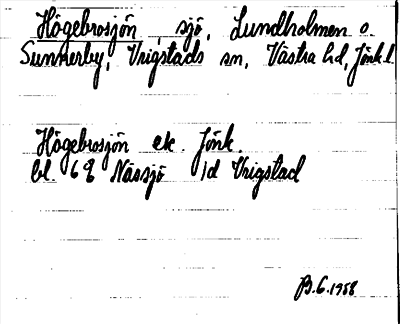 Högebrosjön, sjö, Lundholmen o.
Sunnerby, Vrigstads sn, Västra hd, Jönk. l.
Högebrosjön ek. Jönk.
bl. 69 Nässjö 1d Vrigstad
B. G. 1958